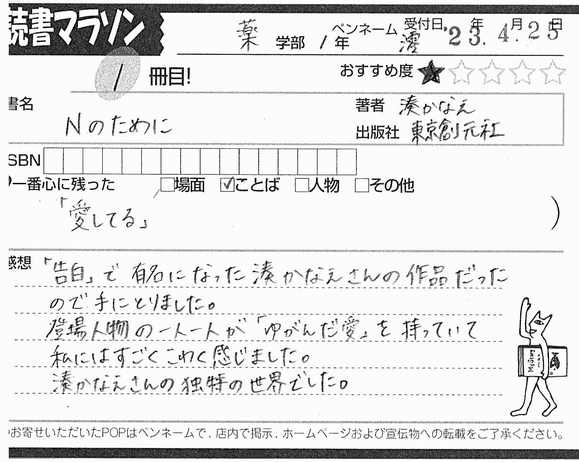 読書マラソン
薬 学部 1年 ペンネーム 澪 受付日 '23年4月25日
1 冊目! おすすめ度 ★☆☆☆☆
書名 Nのために
著者 湊かなえ
出版社 東京創元社
ISBN
一番心に残った □場面 ☑ことば □人物 □その他
「愛してる」 )
感想 「告白」で有名になった湊かなえさんの作品だった
ので手にとりました。
登場人物の一人一人が「ゆがんだ愛」を持っていて
私にはすごくこわく感じました。
湊かなえさんの独特の世界でした。
お寄せいただいたPOPはペンネームで、店内で掲示、ホームページおよび宣伝物への転載をご了承ください。